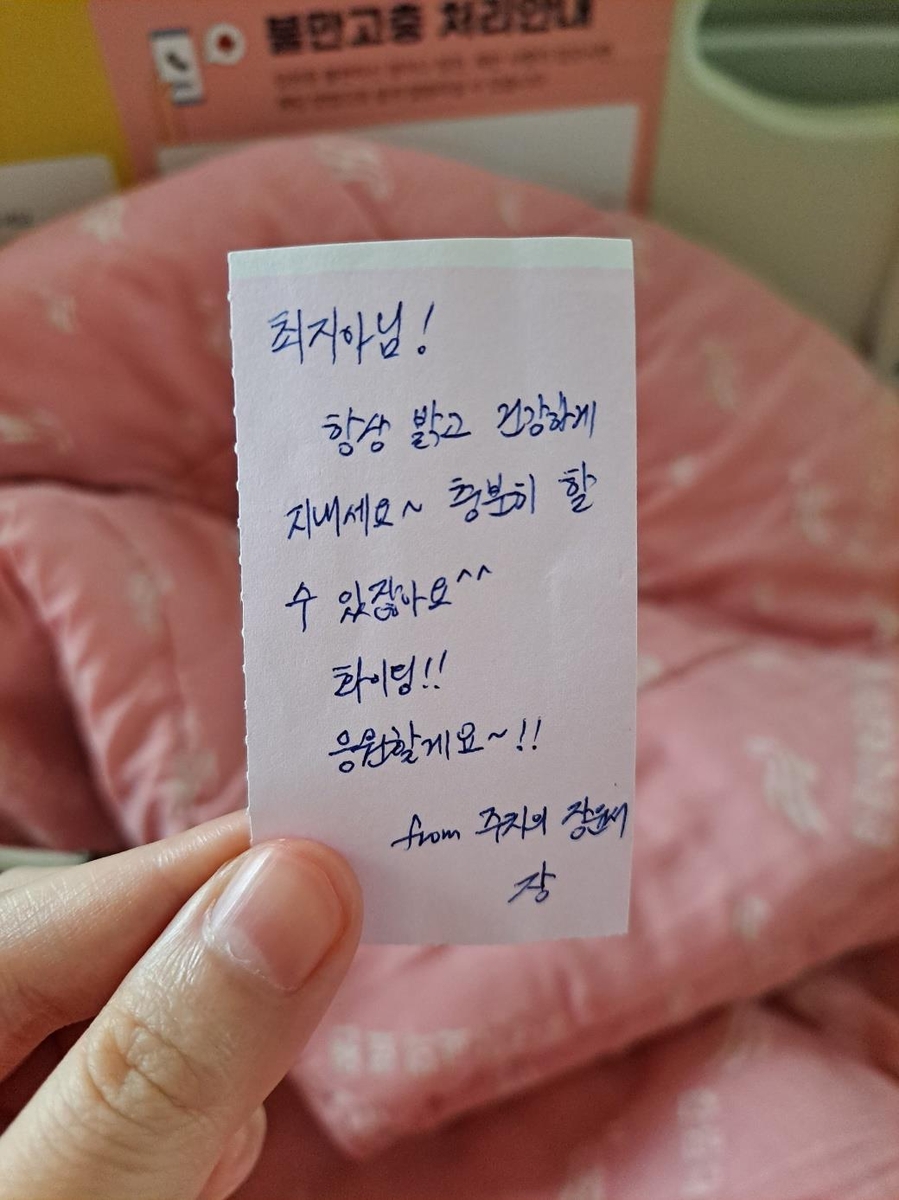 불만고충 처리안내
최지아님!
항상 밝고 건강하게
지내세요~ 충분히 할
수 있잖아요^^
화이팅!!
응원할게요~!!
from 주치의 장윤서
장